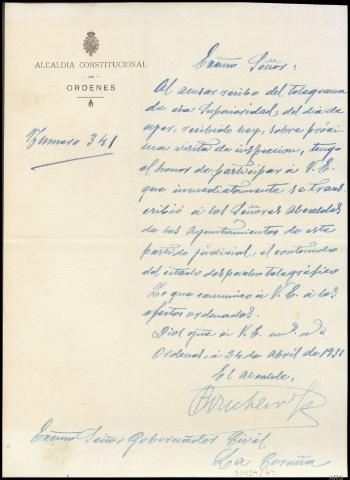 ALCALDIA CONSTITUCIONAL
DE
ORDENES
Numero 341
Excmo Señor:
Al acusar recibo del telegrama
de esa Superioridad, del dia de
ayer, recibido hoy, sobre próxi
ma visita de inspeccion, tengo
el honor de participar à V.E.
que inmediatamente se trans
cribió à los Señores Alcaldes
de los Ayuntamientos de este
partido judicial, el contenido
del citado despacho telegráfico
Lo que comunico à V. E. à los
efectos ordenados.
Dios gue à V. E. ms. as
Ordenes, à 24 de Abril de 1931
El Alcalde,
Excmo Señor Gobernador Civil
La Coruña